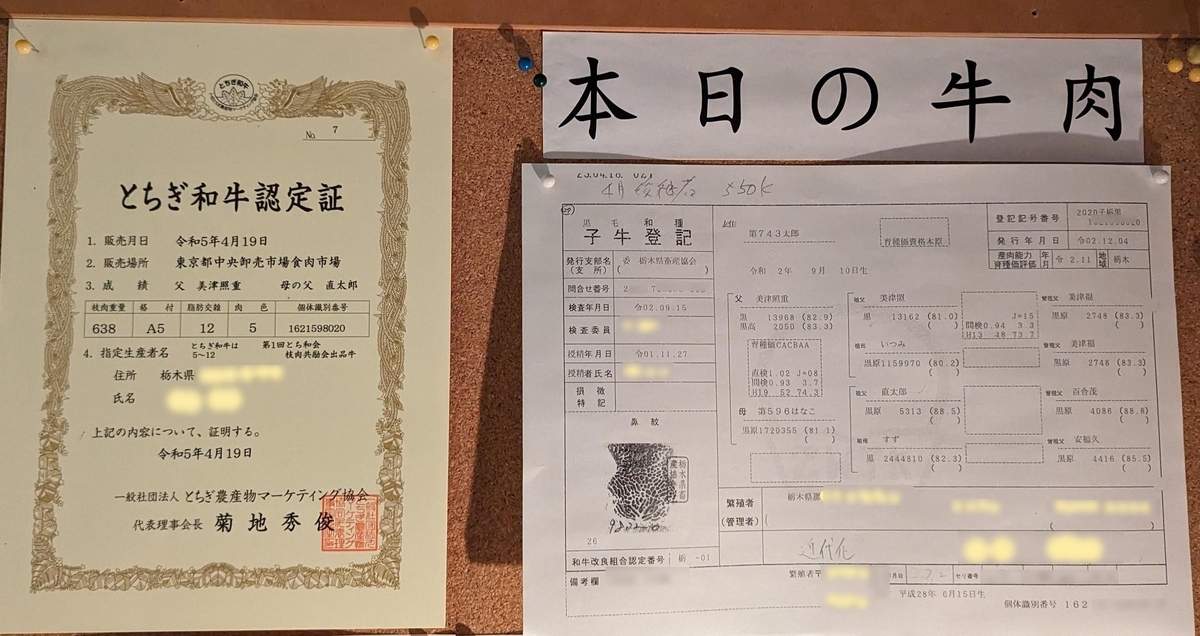 とちぎ和牛
No. 7
とちぎ和牛認定証
1. 販売月日 令和5年4月19日
2. 販売場所 東京都中央卸売市場食肉市場
3. 成績 父 美津照重 母の父 直太郎
枝肉重量 格付 脂肪交雑 肉色 個体識別番号
638 A5 12 5 1621598020
4. 指定生産者名 とちぎ和牛は 5~12 第1回とち和会 枝肉共励会出品牛
住所 栃木県
氏名
上記の内容について、証明する。
令和5年4月19日
一般社団法人 とちぎ農産物マーケティング協会
代表理事会長 菊地秀俊
本日の牛肉
4月 550K
黒毛和種
子牛登記
第743太郎
育種価資格本原
登記記号番号 2020子栃黒
発行年月日 令02.12.04
産肉能力育種価評価 年月 令 2.11 地域 栃木
発行支部名(支所) 委 栃木県畜産協会
令和 2年 9月 10日生
問合せ番号 2
検査年月日 令02.09.15
検査委員
授精年月日 令01.11.27
授精者氏名
損徴特記
鼻紋
父 美津照重
黒 13968 (82.9)
黒高 2050 (83.3)
育種価CACBAA
直検1.02 J=08
間検0.93 3.7
H19 52 74.3
母 第596はなこ
黒原1720355 (81.1)
祖父 美津照
黒 13162 (81.0)
J=15
間検0.94 3.3
H13 48 73.7
祖母 いつみ
黒原1159970 (80.2)
祖父 直太郎
黒原 5313 (88.5)
祖母 すず
黒 2444810 (82.3)
曽祖父 美津福
黒原 2748 (83.3)
曽祖父 美津福
黒原 2748 (83.3)
曽祖父 百合茂
黒原 4086 (88.8)
曽祖父 安福久
黒原 4416 (85.5)
26
和牛改良組合認定番号 栃 -01
繁殖者(管理者) 栃木県
近代化
備考欄
繁殖者〒
セリ番号
平成28年 6月15日生
個体識別番号 162